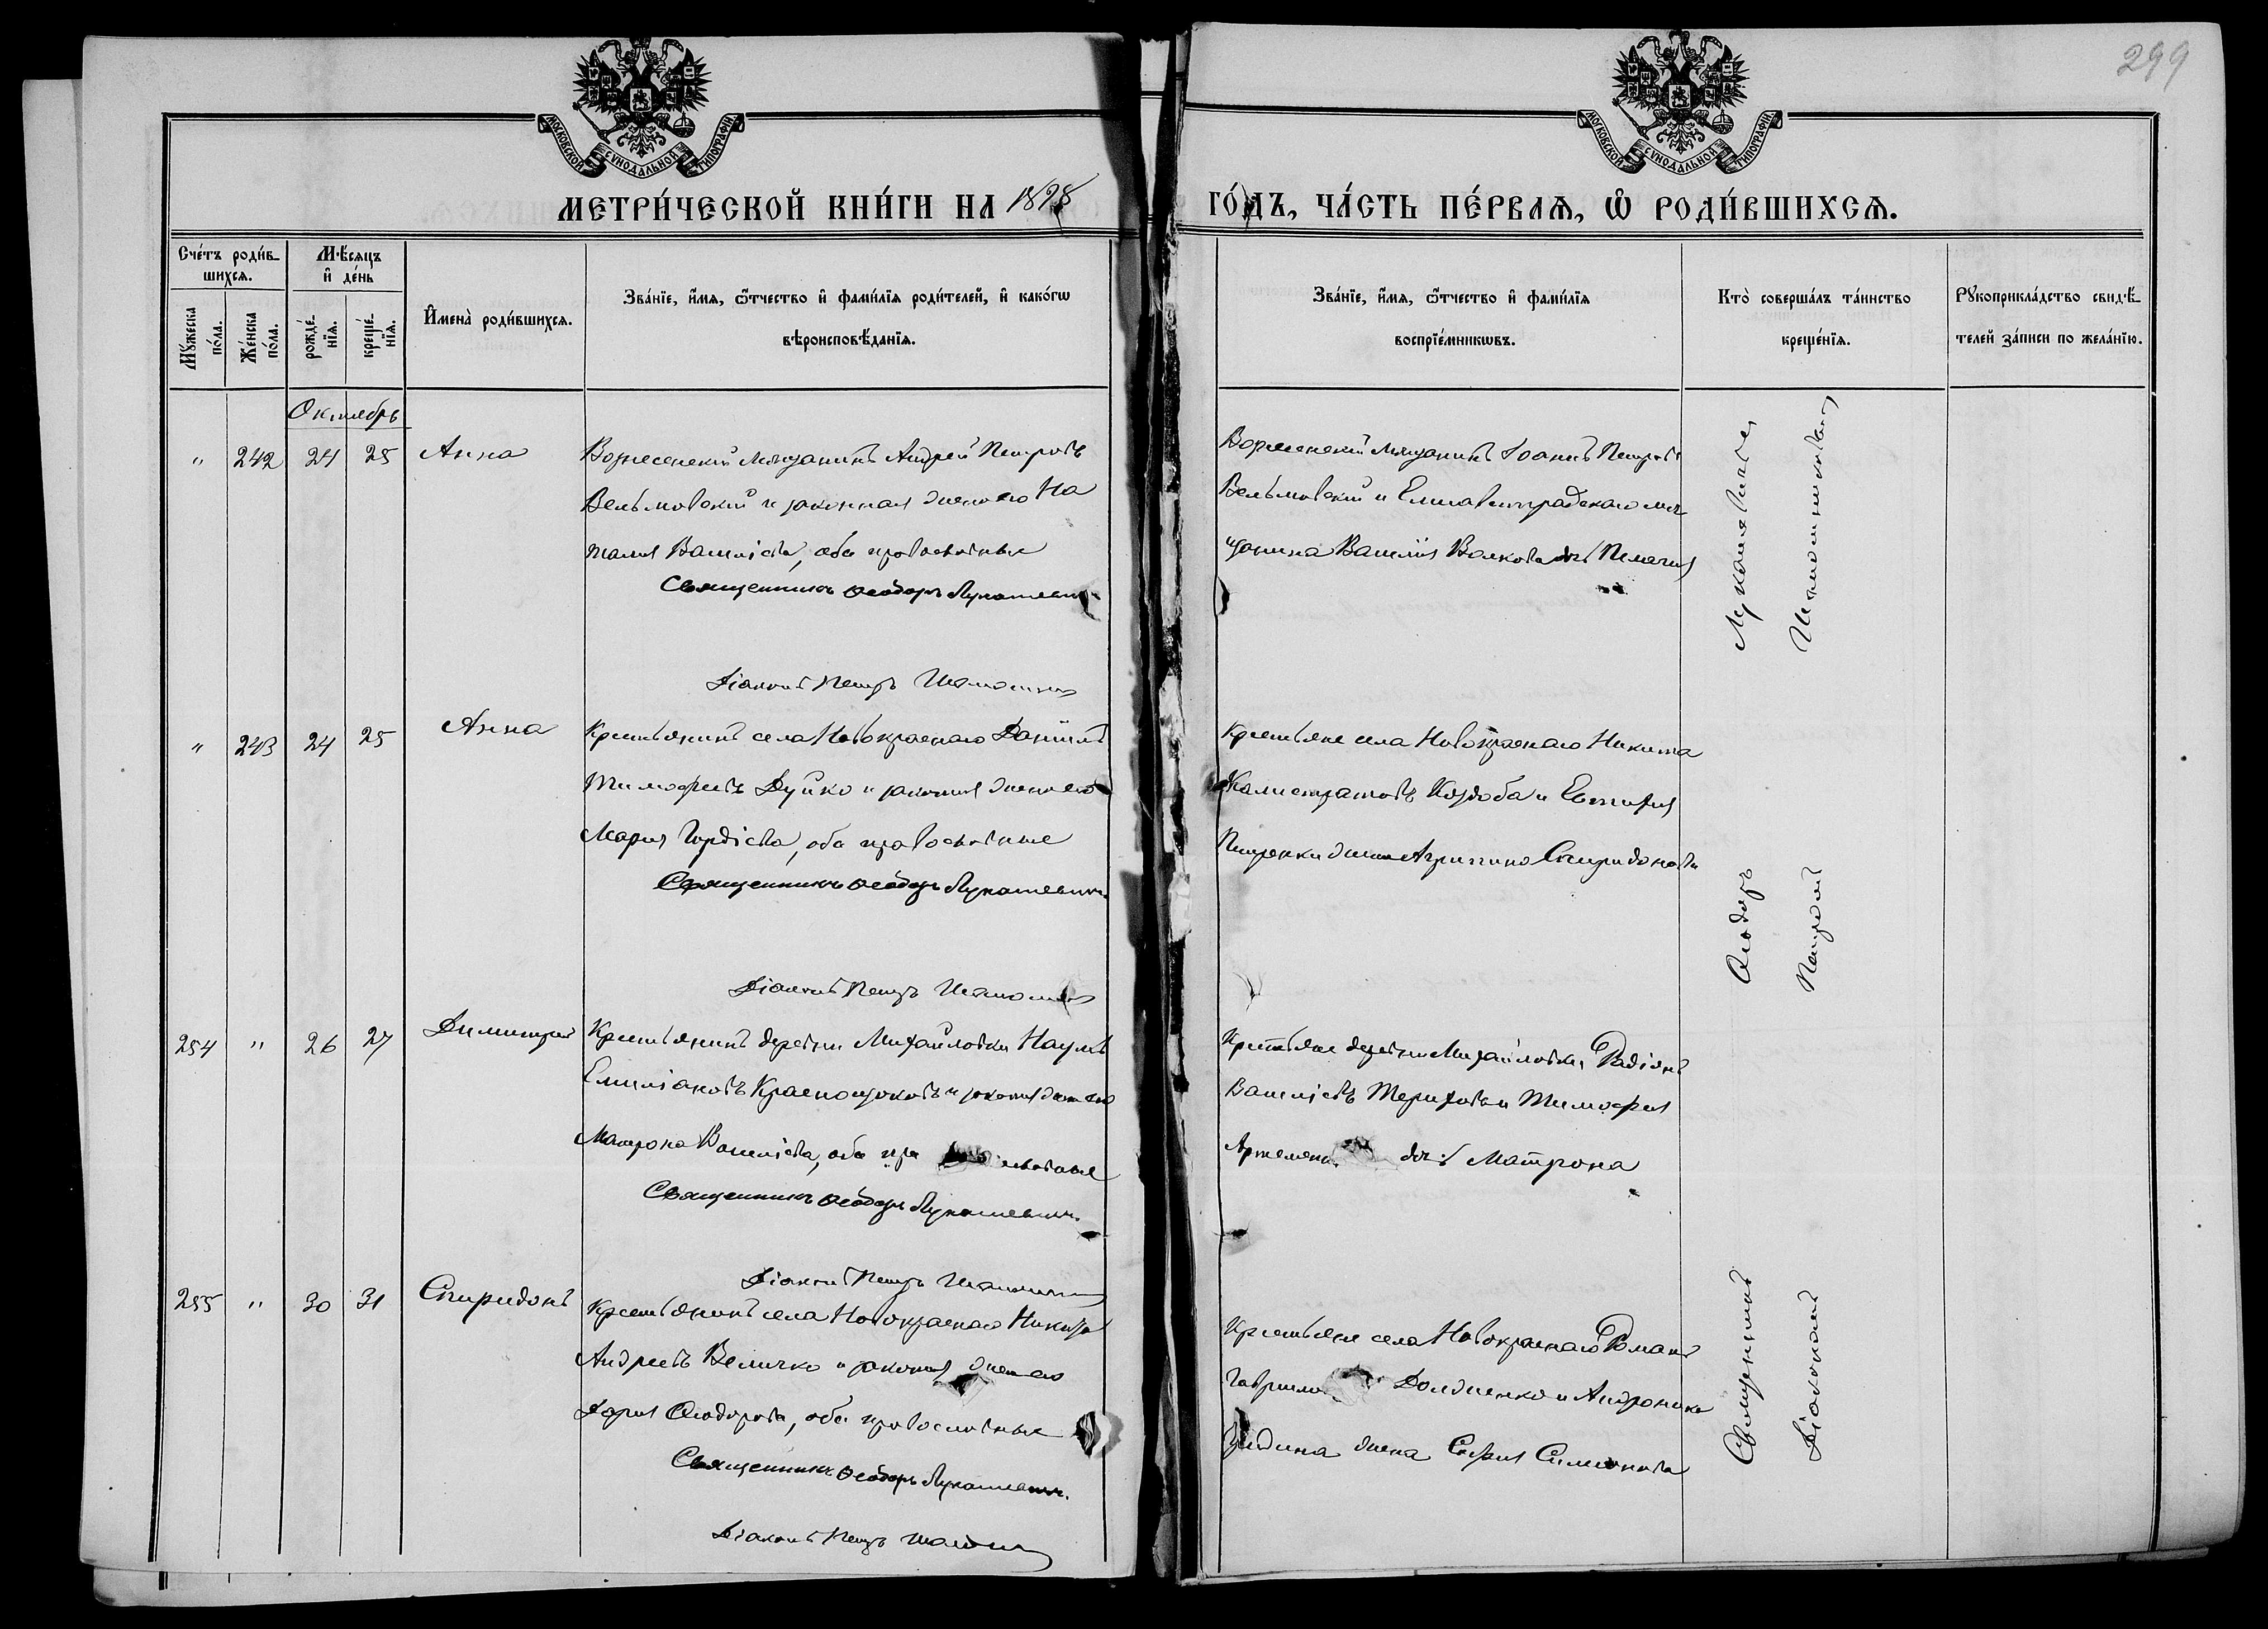 299
МОСКОВСКОЙ СУНОДАЛЬНОЙ ТИПОГРАФІИ
МОСКОВСКОЙ СУНОДАЛЬНОЙ ТИПОГРАФІИ
МЕТРИ́ЧЕСКОЙ КНИ́ГИ НА 1898 ГО́ДЪ, ЧА́СТЬ ПЕ́РВАѦ, Ѡ҆ РОДИ́ВШИХСѦ.
Сче́тъ роди́в-
шихсѧ.
Мѣ́сѧцъ
и҆ де́нь
Мꙋ́жеска
по́ла.
Же́нска
по́ла.
рожде́-
нїѧ.
креще́-
нїѧ.
И҆мена̀ роди́вшихсѧ.
Зва́нїе, и҆́мѧ, ѻ҆́тчество и҆ фами́лїѧ роди́телей, и҆ како́гѡ
вѣроисповѣ́данїѧ.
Зва́нїе, и҆́мѧ, ѻ҆́тчество и҆ фами́лїѧ
воспрїе́мникѡвъ.
Кто̀ соверша́лъ та́инство
креще́нїѧ.
Рꙋкоприкла́дство свидѣ́-
телей за́писи по жела́нїю.
Октябрь
" 242 24 25 Анна
Вознесенскій мѣщанинъ Андрей Петровъ
Вельмовскій и законная жена его На
талія Василіева, оба православные
Священникъ Ѳеодоръ Лукашевичъ
Діаконъ Петръ
Вознесенскій мѣщанинъ Іоаннъ Петровъ
Вельмовскій и Елисаветградскаго мѣ
щанина Василія Волкова дочь Пелагія
" 243 24 25 Анна
Крестьянинъ села Новокраснаго Даніилъ
Тимофеевъ Дуйко и законная жена его
Марія Гордіева, оба православные
Священникъ Ѳеодоръ Лукашевичъ
Діаконъ Петръ
Крестьяне села Новокраснаго Никита
Калистратовъ Коздоба и Евтихія
Петренка жена Агриппина Спиридонова
254 " 26 27 Димитрій
Крестьянинъ деревни Михайловки Наумъ
Емиліановъ Краснощоковъ и законная жена его
Матрона Василіева, оба православные
Священникъ Ѳеодоръ Лукашевичъ.
Діаконъ Петръ
Крестьяне деревни Михайловки Радіонъ
Василіевъ Териховъ и Тимофея
дочь Матрона
255 " 30 31 Спиридонъ
Крестьянинъ села Новокраснаго Никита
Андреевъ Величко и законная жена его
Дарія Ѳеодорова, оба православные
Священникъ Ѳеодоръ Лукашевичъ.
Діаконъ Петръ
Крестьяне села Новокраснаго Романъ
Долженко и Андроника
жена Софія Симеонова
Священникъ Ѳеодоръ Лукашевичъ
Діаконъ Петръ